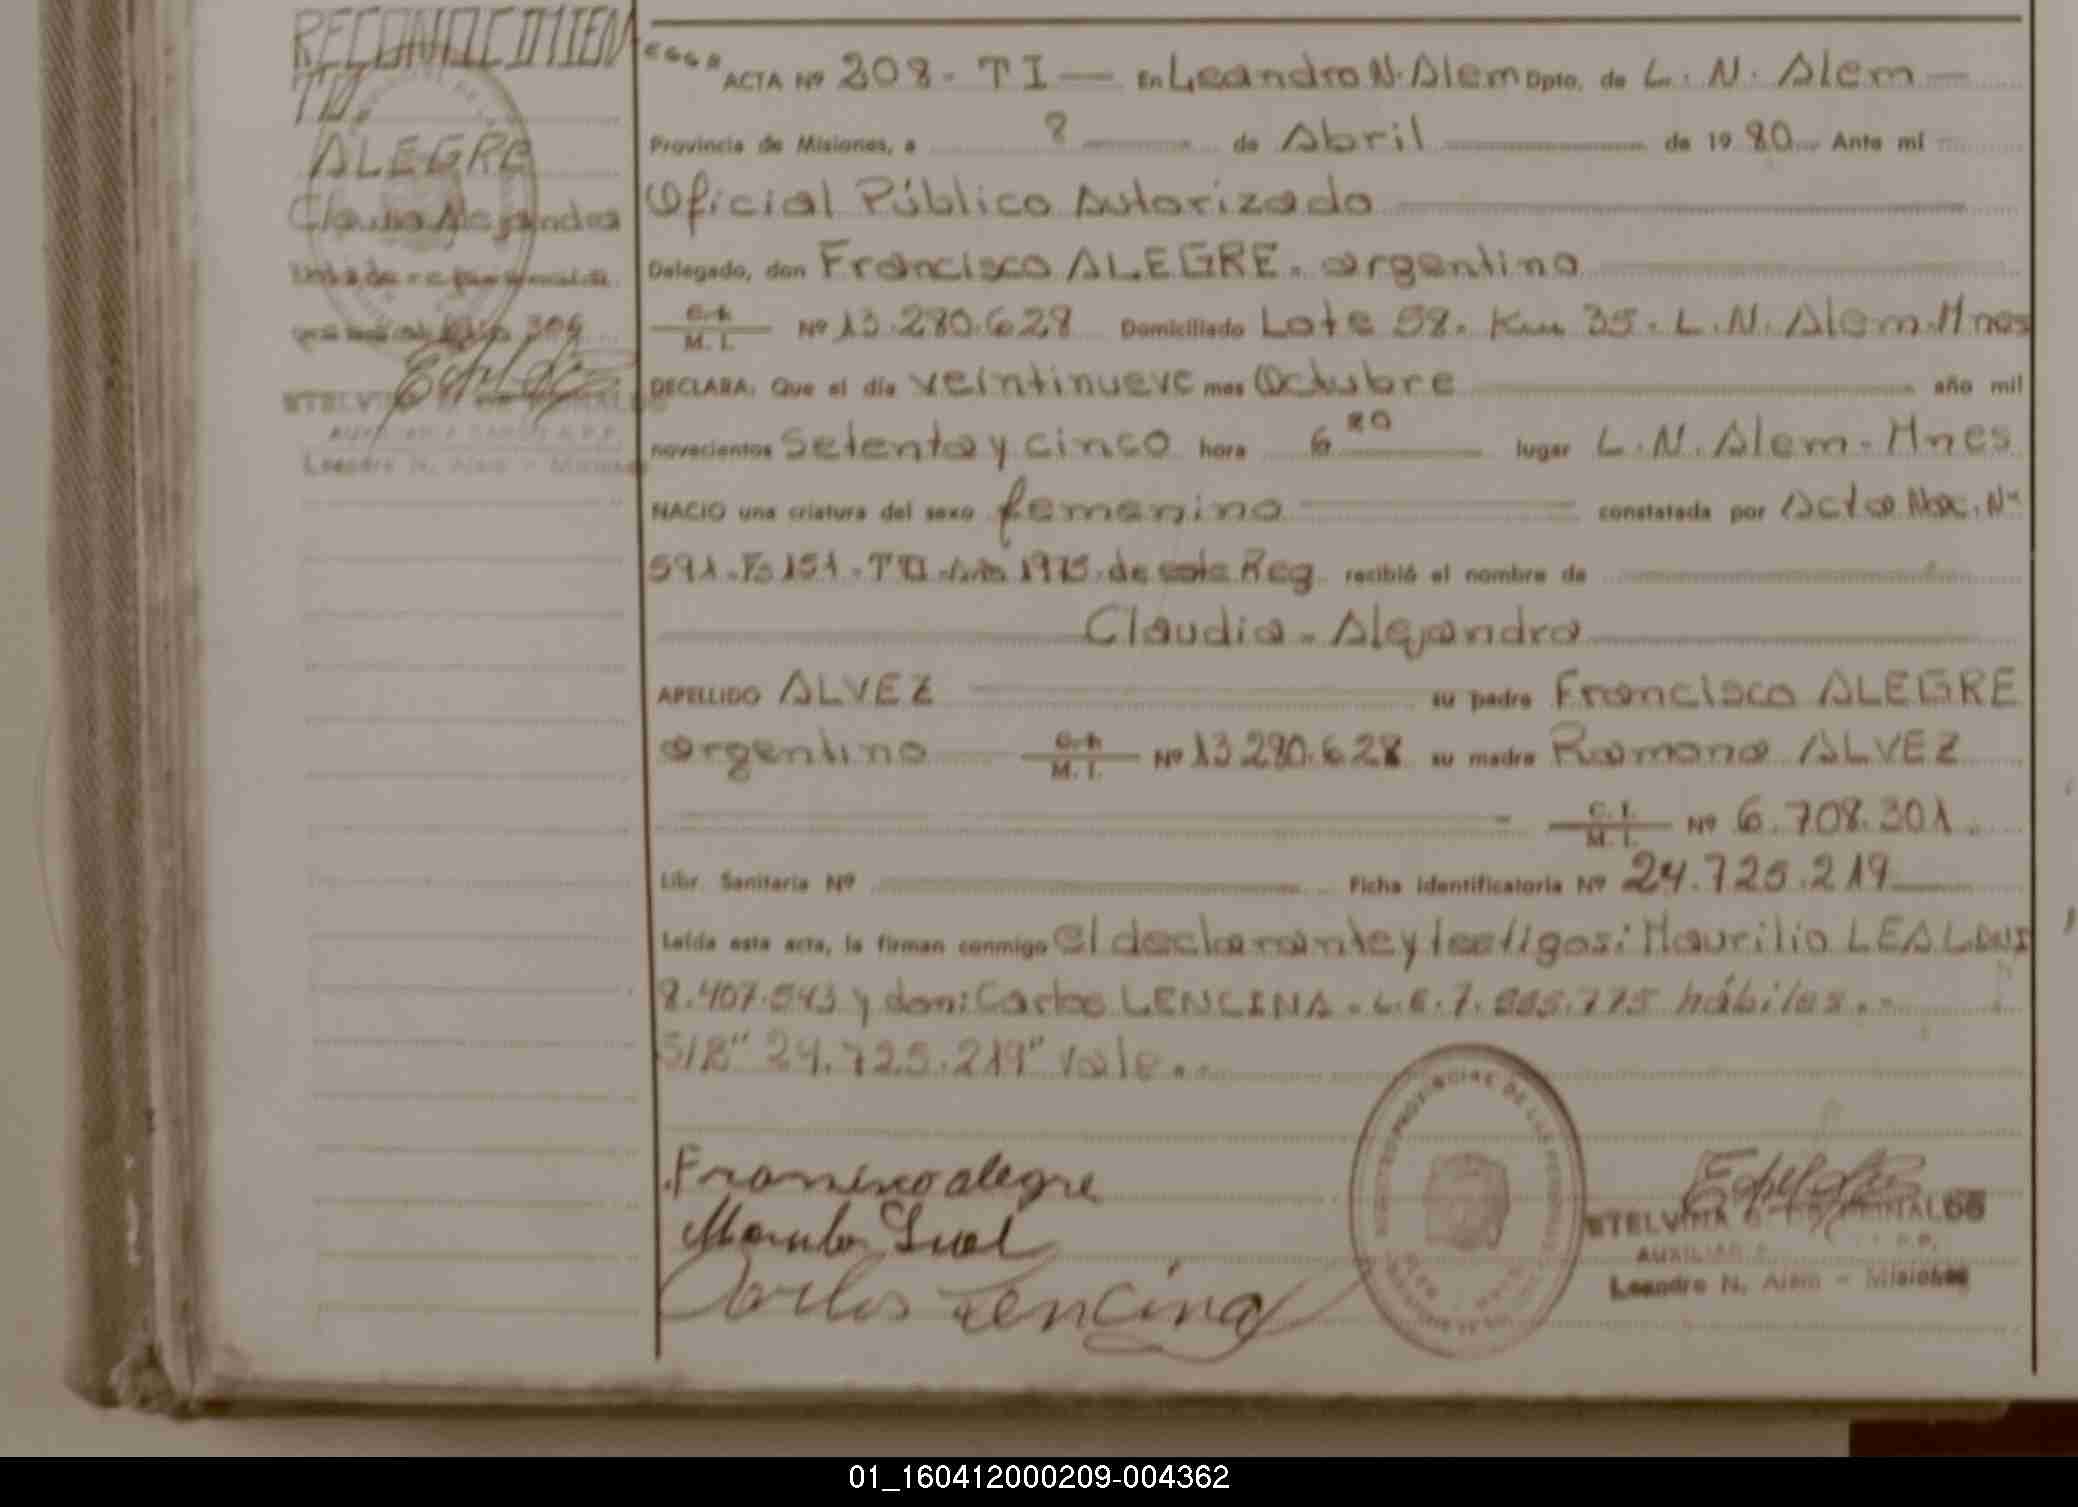 RECONOCIMIEN
TO.
ALEGRE
Claudia Alejandra
ACTA Nº 208 - T I — En Leandro N. Alem Dpto. de L. N. Alem
Provincia de Misiones, a 8 de Abril de 1980 Ante mí
Oficial Público Autorizado
Delegado, don Francisco ALEGRE. argentino
C. I. / M. I. Nº 13.280.628 Domiciliado Lote 58. Km 35. L. N. Alem. Mnes
DECLARA: Que el día veintinueve mes Octubre año mil
novecientos Setenta y cinco hora 6 lugar L. N. Alem - Mnes
NACIO una criatura del sexo femenino constatada por Acta Nac. Nº
591. Fº 151. T II 1975. de este Reg recibió el nombre de
Claudia - Alejandra
APELLIDO ALVEZ su padre Francisco ALEGRE
argentino C. I. / M. I. Nº 13.280.628 su madre Ramona ALVEZ
C. I. / M. I. Nº 6.708.301.
Libr. Sanitaria Nº Ficha Identificatoria Nº 24.725.219
Leída esta acta, la firman conmigo el declarante y testigos: Maurilio LEAL DNI
8.407.543 y don: Carlos LENCINA. L.E. 7. hábiles. -
S/R "24.725.219" vale. -
Francisco alegre
Carlos Lencina
AUXILIAR
Leandro N. Alem - Misiones
01_160412000209-004362